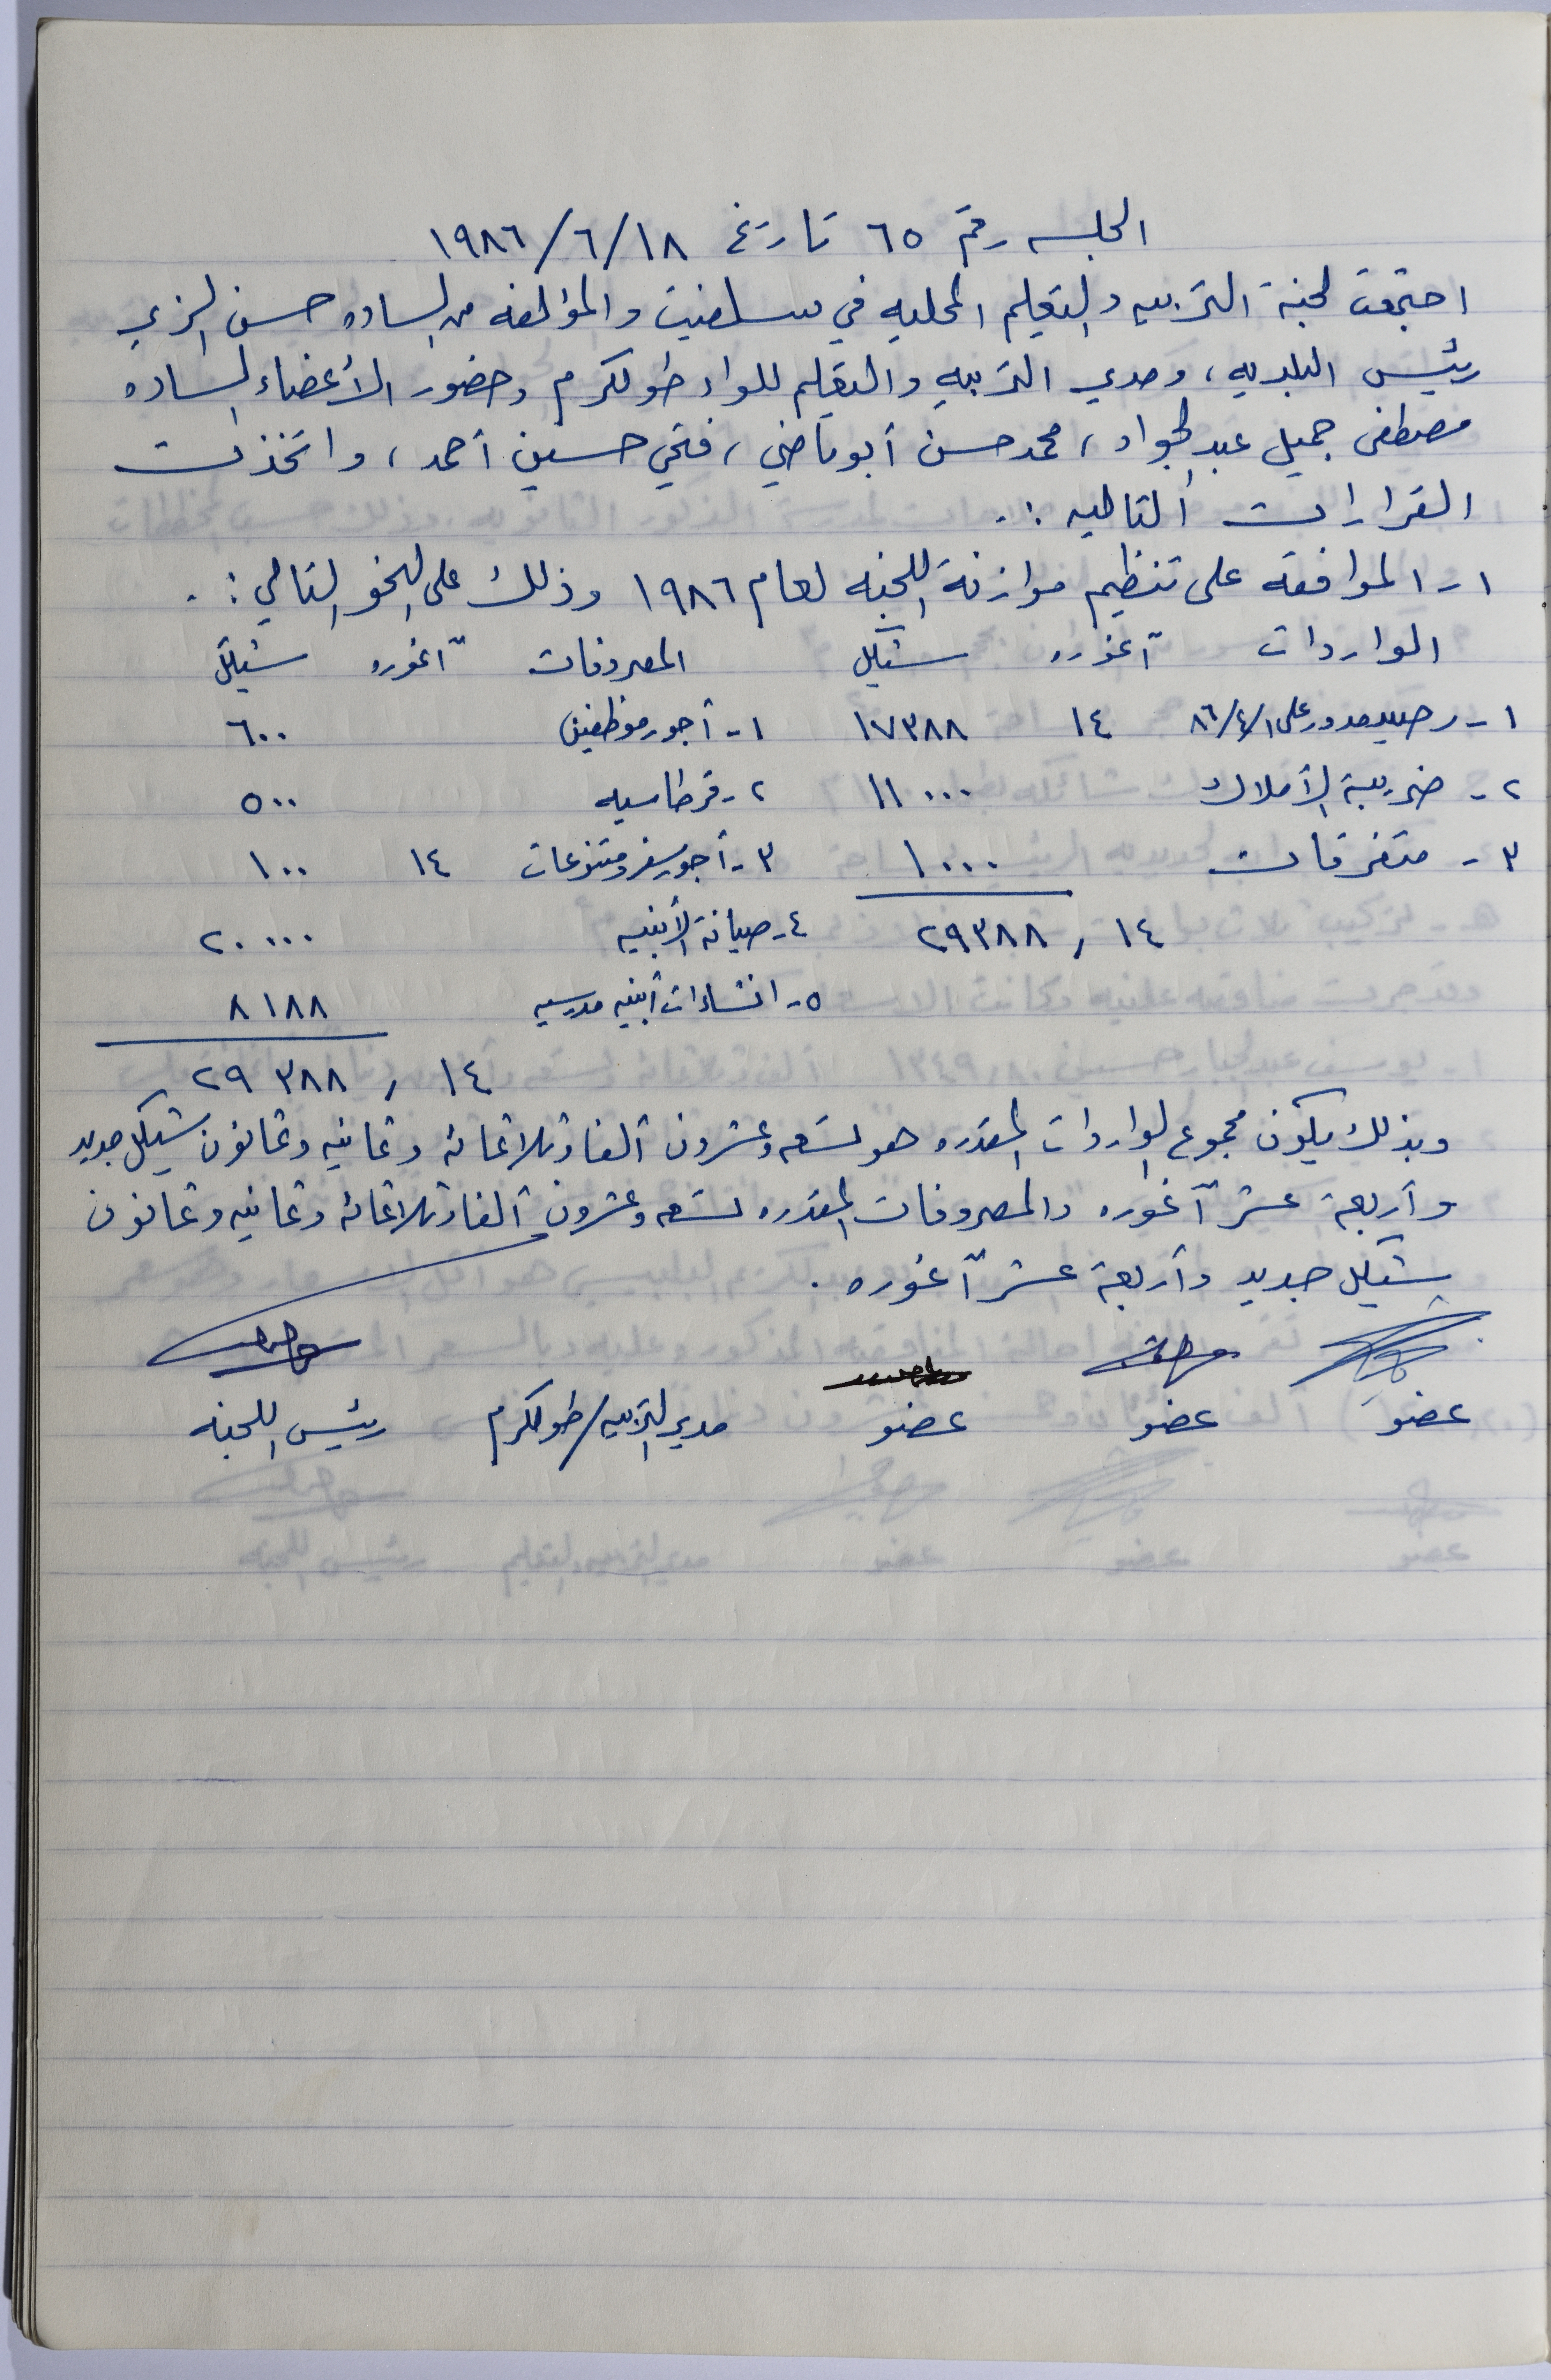 الجلسه رقم ٦٥ تاريخ ١٩٨٦/٦/١٨
اجتمعت لجنة التربيه والتعليم المحليه في سلفيت والمؤلفه من الساده حسن الزير
رئيس البلديه، ومدير التربيه والتعليم للواء طولكرم وحضور الأعضاء الساده
مصطفى جميل عبدالجواد، محمد حسن أبوماضي، فتحي حسين أحمد، واتخذت
القرارات التاليه :.
١- الموافقه على تنظيم موازنة اللجنه لعام ١٩٨٦ وذلك على النحو التالي :.
الواردات آغوره شيكل المصروفات آغوره شيكل
١- رصيد مدور على ٨٦/٤/١ ١٤ ١٧٣٨٨ ١- أجور موظفين ٦٠٠
٢- ضريبة الأملاك ١١٠٠٠ ٢- قرطاسيه ٥٠٠
٣- متفرقات ١٠٠٠ ٣- أجور سفر ومتنوعات ١٤ ١٠٠
١٤ , ٢٩٣٨٨ ٤- صيانة الأبنيه ٢٠٠٠٠
٥- انشاءات أبنيه مدرسيه ٨١٨٨
١٤ , ٢٩٣٨٨
وبذلك يكون مجموع الواردات المقدره هو تسعه وعشرون ألفا وثلاثمائه وثمانيه وثمانون شيكل جديد
وأربعة عشر آغوره والمصروفات المقدره تسعه وعشرون ألفا وثلاثمائه وثمانيه وثمانون
شيكل جديد وأربعة عشر آغوره .
عضو عضو عضو مدير التربيه/طولكرم رئيس اللجنه